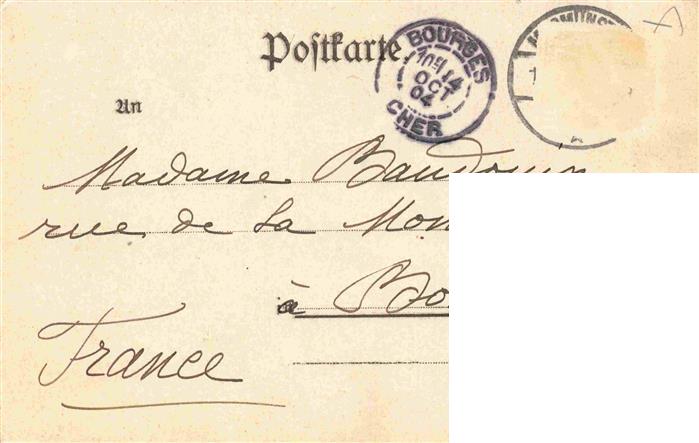 Postkarte.
BOURGES
10H 14
OCT
04
CHER
An
Madame Baudouin
rue de la
à
France